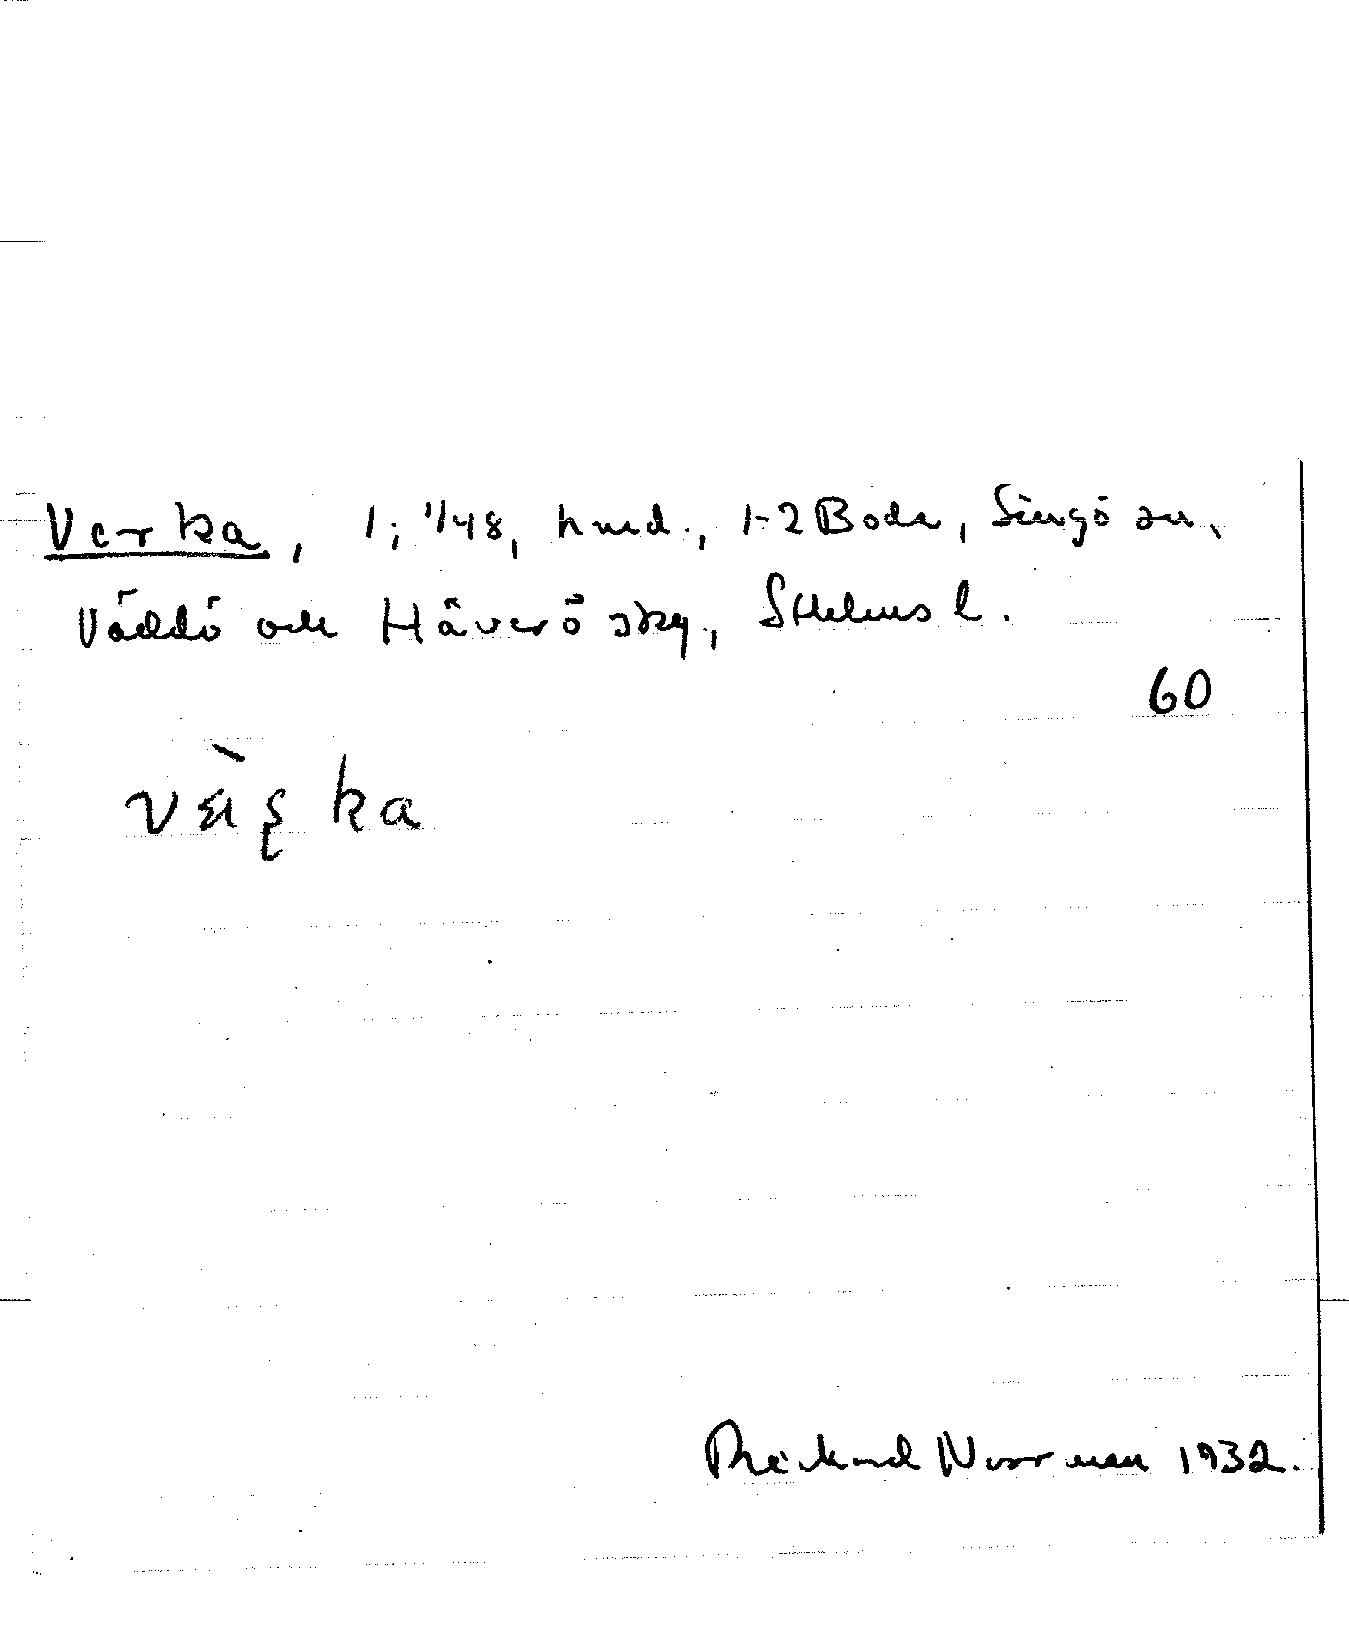 Verka, 1; 1/48, hmd., 1-2 Boda, Singö sn,
Väddö och Häverö skg, Sthlms l.
60
Rickard Norrman 1932.